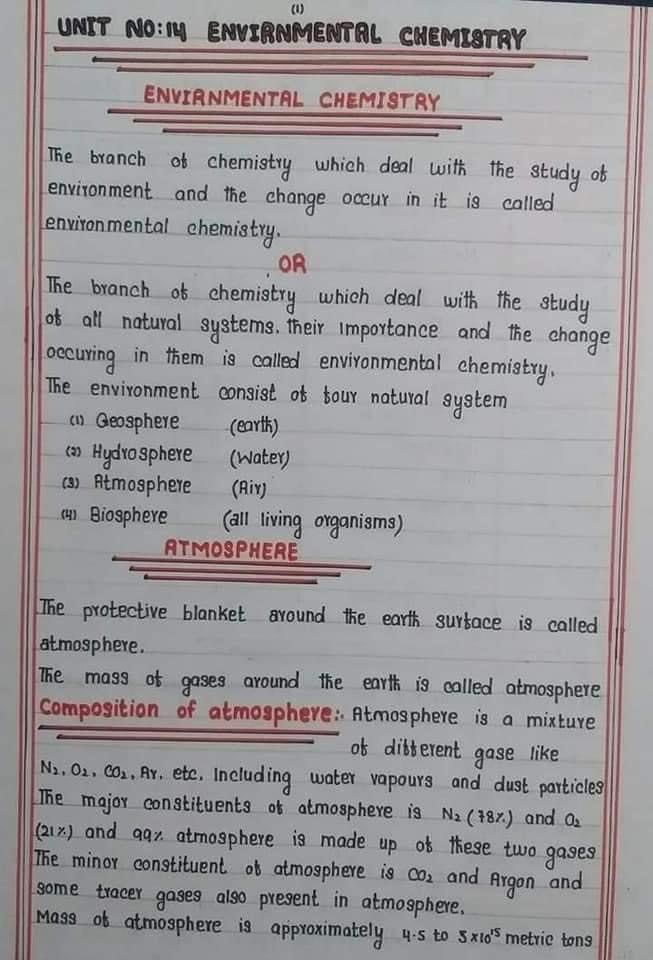 (1)
UNIT NO:14 ENVIRNMENTAL CHEMISTRY
ENVIRNMENTAL CHEMISTRY
The branch of chemistry which deal with the study of
environment and the change occur in it is called
environmental chemistry.
OR
The branch of chemistry which deal with the study
of all natural systems. their importance and the change
occuring in them is called environmental chemistry.
The environment consist of four natural system
(1) Geosphere (earth)
(2) Hydrosphere (Water)
(3) Atmosphere (Air)
(4) Biosphere (all living organisms)
ATMOSPHERE
The protective blanket around the earth surface is called
atmosphere.
The mass of gases around the earth is called atmosphere
Composition of atmosphere:. Atmosphere is a mixture
of different gase like
N₂, O₂, CO₂, Ar. etc. Including water vapours and dust particles
The major constituents of atmosphere is N₂ (78%) and O₂
(21%) and 99% atmosphere is made up of these two gases
The minor constituent of atmosphere is CO₂ and Argon and
some tracer gases also present in atmosphere.
Mass of atmosphere is approximately 4.5 to 5x10¹⁵ metric tons